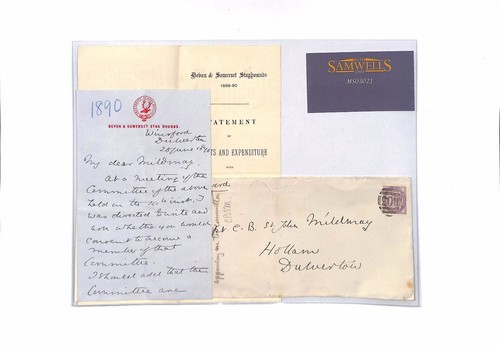 1890
DEVON & SOMERSET STAG HOUNDS.
Winsford
Dulverton
28 June 1890
My dear Mildmay.
At a meeting of the
Committee of the above
held on the 10th inst. I
was directed to write and
ask whether you would
consent to become a
member of that
Committee.
I should add that the
Committee are
Devon & Somerset Staghounds
1889-90
STATEMENT
OF
TS AND EXPENDITURE
SAMWELLS
MS03023
C. B. St John Mildmay
Hollam
Dulverton